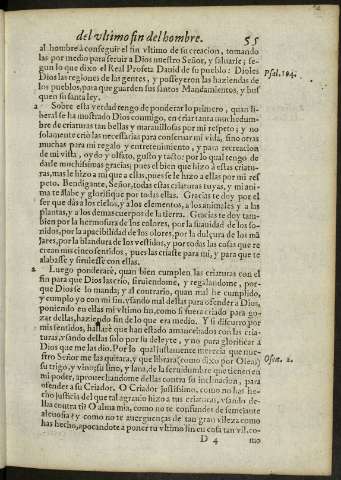 del vltimo fin del hombre. 55
al hombre à conseguir el fin vltimo de su creacion, tomando
las por medio para seruir a Dios nuestro Señor, y saluarse; se-
gun lo que dixo el Real Profeta Dauid de su pueblo: Dioles
Dios las regiones de las gentes, y posseyeron las haziendas de
los pueblos, para que guarden sus santos Mandamientos, y bus
quen su santa ley.
Psal. 104.
2 Sobre esta verdad tengo de ponderar lo primero, quan li-
beral se ha mostrado Dios conmigo, en criar tanta muchedum-
bre de criaturas tan bellas y marauillosas por mi respeto; y no
solamente criò las necessarias para conseruar mi vida, sino otras
muchas para mi regalo y entretenimiento, y para recreacion
de mi vista, oydo y olfato, gusto y tacto: por lo qual tengo de
darle muchissimas gracias; pues el bien que hizo à estas criatu-
ras, mas le hizo a mi que a ellas, pues se le hazo a ellas por mi res
peto. Bendigante, Señor, todas estas criaturas tuyas, y mi ani-
ma te alabe y glorifique por todas ellas. Gracias te doy por el
ser que dàs a los cielos, y à los elementos, a los animales y a las
plantas, y a los demas cuerpos de la tierra. Gracias te doy tam-
bien por la hermosura de los colores, por la suauidad de los so-
nidos, por la apacibilidad de los olores, por la dulçura de los mã
jares, por la blandura de los vestidos, y por todas las cosas que re
crean mis cinco sentidos, pues las criaste para mi, y para que te
alabasse y siruiesse con ellas.
2 Luego ponderarè, quan bien cumplen las criaturas con el
fin para que Dios las criò, siruiendome, y regalandome, por-
que Dios se lo manda; y al contrario, quan mal he cumplido,
y cumplo yo con mi fin, vsando mal dellas para ofender a Dios,
poniendo en ellas mi vltimo fin, como si fuera criado para go-
zar dellas, haziendo fin de lo que era medio. Y si discurro por
mis sentidos, hallarè que han estado amancebados con las cria-
turas, vsando dellas solo por su deleyte, y no para glorificar à
Dios que me las dio. Por lo qual justamente merecia que nue-
stro Señor me las quitara, y que librara (como dixo por Oseas)
su trigo, y vino; su lino, y lana, de la seruidumbre que tienen en
mi poder, aprouechandome dellas contra su inclinacion, para
ofender a su Criador. O Criador justissimo, como no has he-
cho justicia del que tal agrauio hizo a tus criaturas, vsando de-
llas contra ti? O alma mia, como no te confundes de semejante
aleuosia? y como no te auerguenças de tan gran vileza como
has hecho, apocandote a poner tu vltimo fin en cosa tan vil, co-
Osee. 2.
D 4 mo